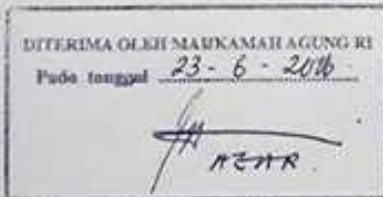 DITERIMA OLEH MAHKAMAH AGUNG RI
Pada tanggal 23 - 6 - 2016
AZAR.